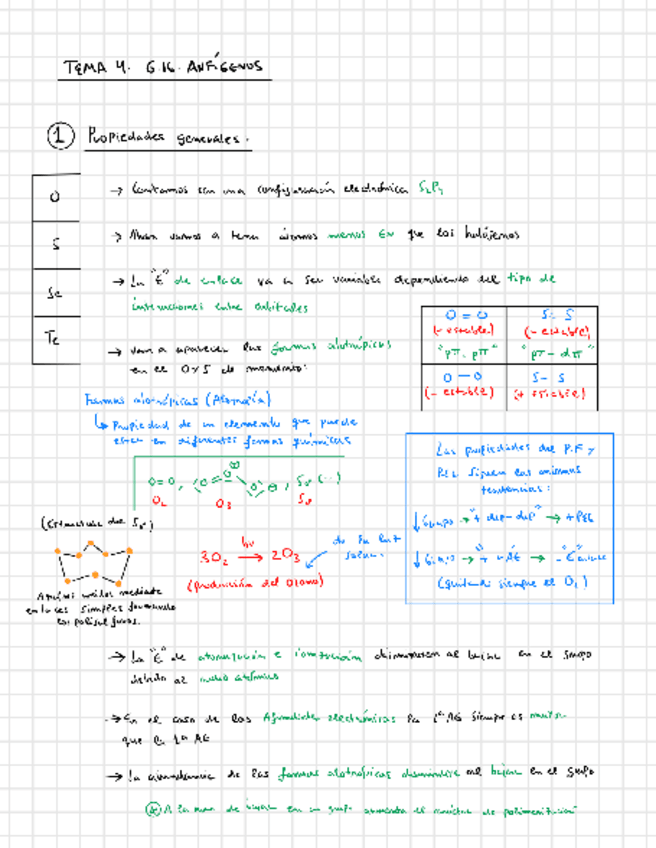 TEMA 4. G.16. ANFÍGENOS
① Propiedades generales.
O
S
Se
Te
→ Contamos con una configuración electrónica S₂P₄
→ Ahora vamos a tener átomos menos EN que los halógenos
→ La "E" de enlace va a ser variable dependiendo del tipo de
interacciones entre orbitales
→ Van a aparecer las formas alotrópicas
en el O y S de momento:
O = O
(- estable)
"pπ-pπ"
S = S
(- estable)
"pπ - dπ"
O - O
(- estable)
S - S
(+ estable)
Formas alotrópicas (Alotropía)
↳ Propiedad de un elemento que puede
estar en diferentes formas químicas
O=O, S₈ (...)
O₂ O₃ S₈
(Estructura del S₈)
Anillos unidos mediante
enlaces simples formando
3O₂ →hν 2O₃
(producción del Ozono)
de la luz
Las propiedades del P.F y
siguen las mismas
tendencias:
↓Grupo → + "dip-dip" → + PEb
↓Grupo → → - "E" enlace
(quitando siempre el O₂)
→ La "E" de atomización e ionización disminuyen al bajar en el grupo
debido al radio atómico
→ En el caso de las Afinidades electrónicas la 2ª AE siempre es mayor
que la 1ª AE
→ La abundancia de las formas alotrópicas disminuye al bajar en el grupo
A la hora de bajar en un grupo aumenta el